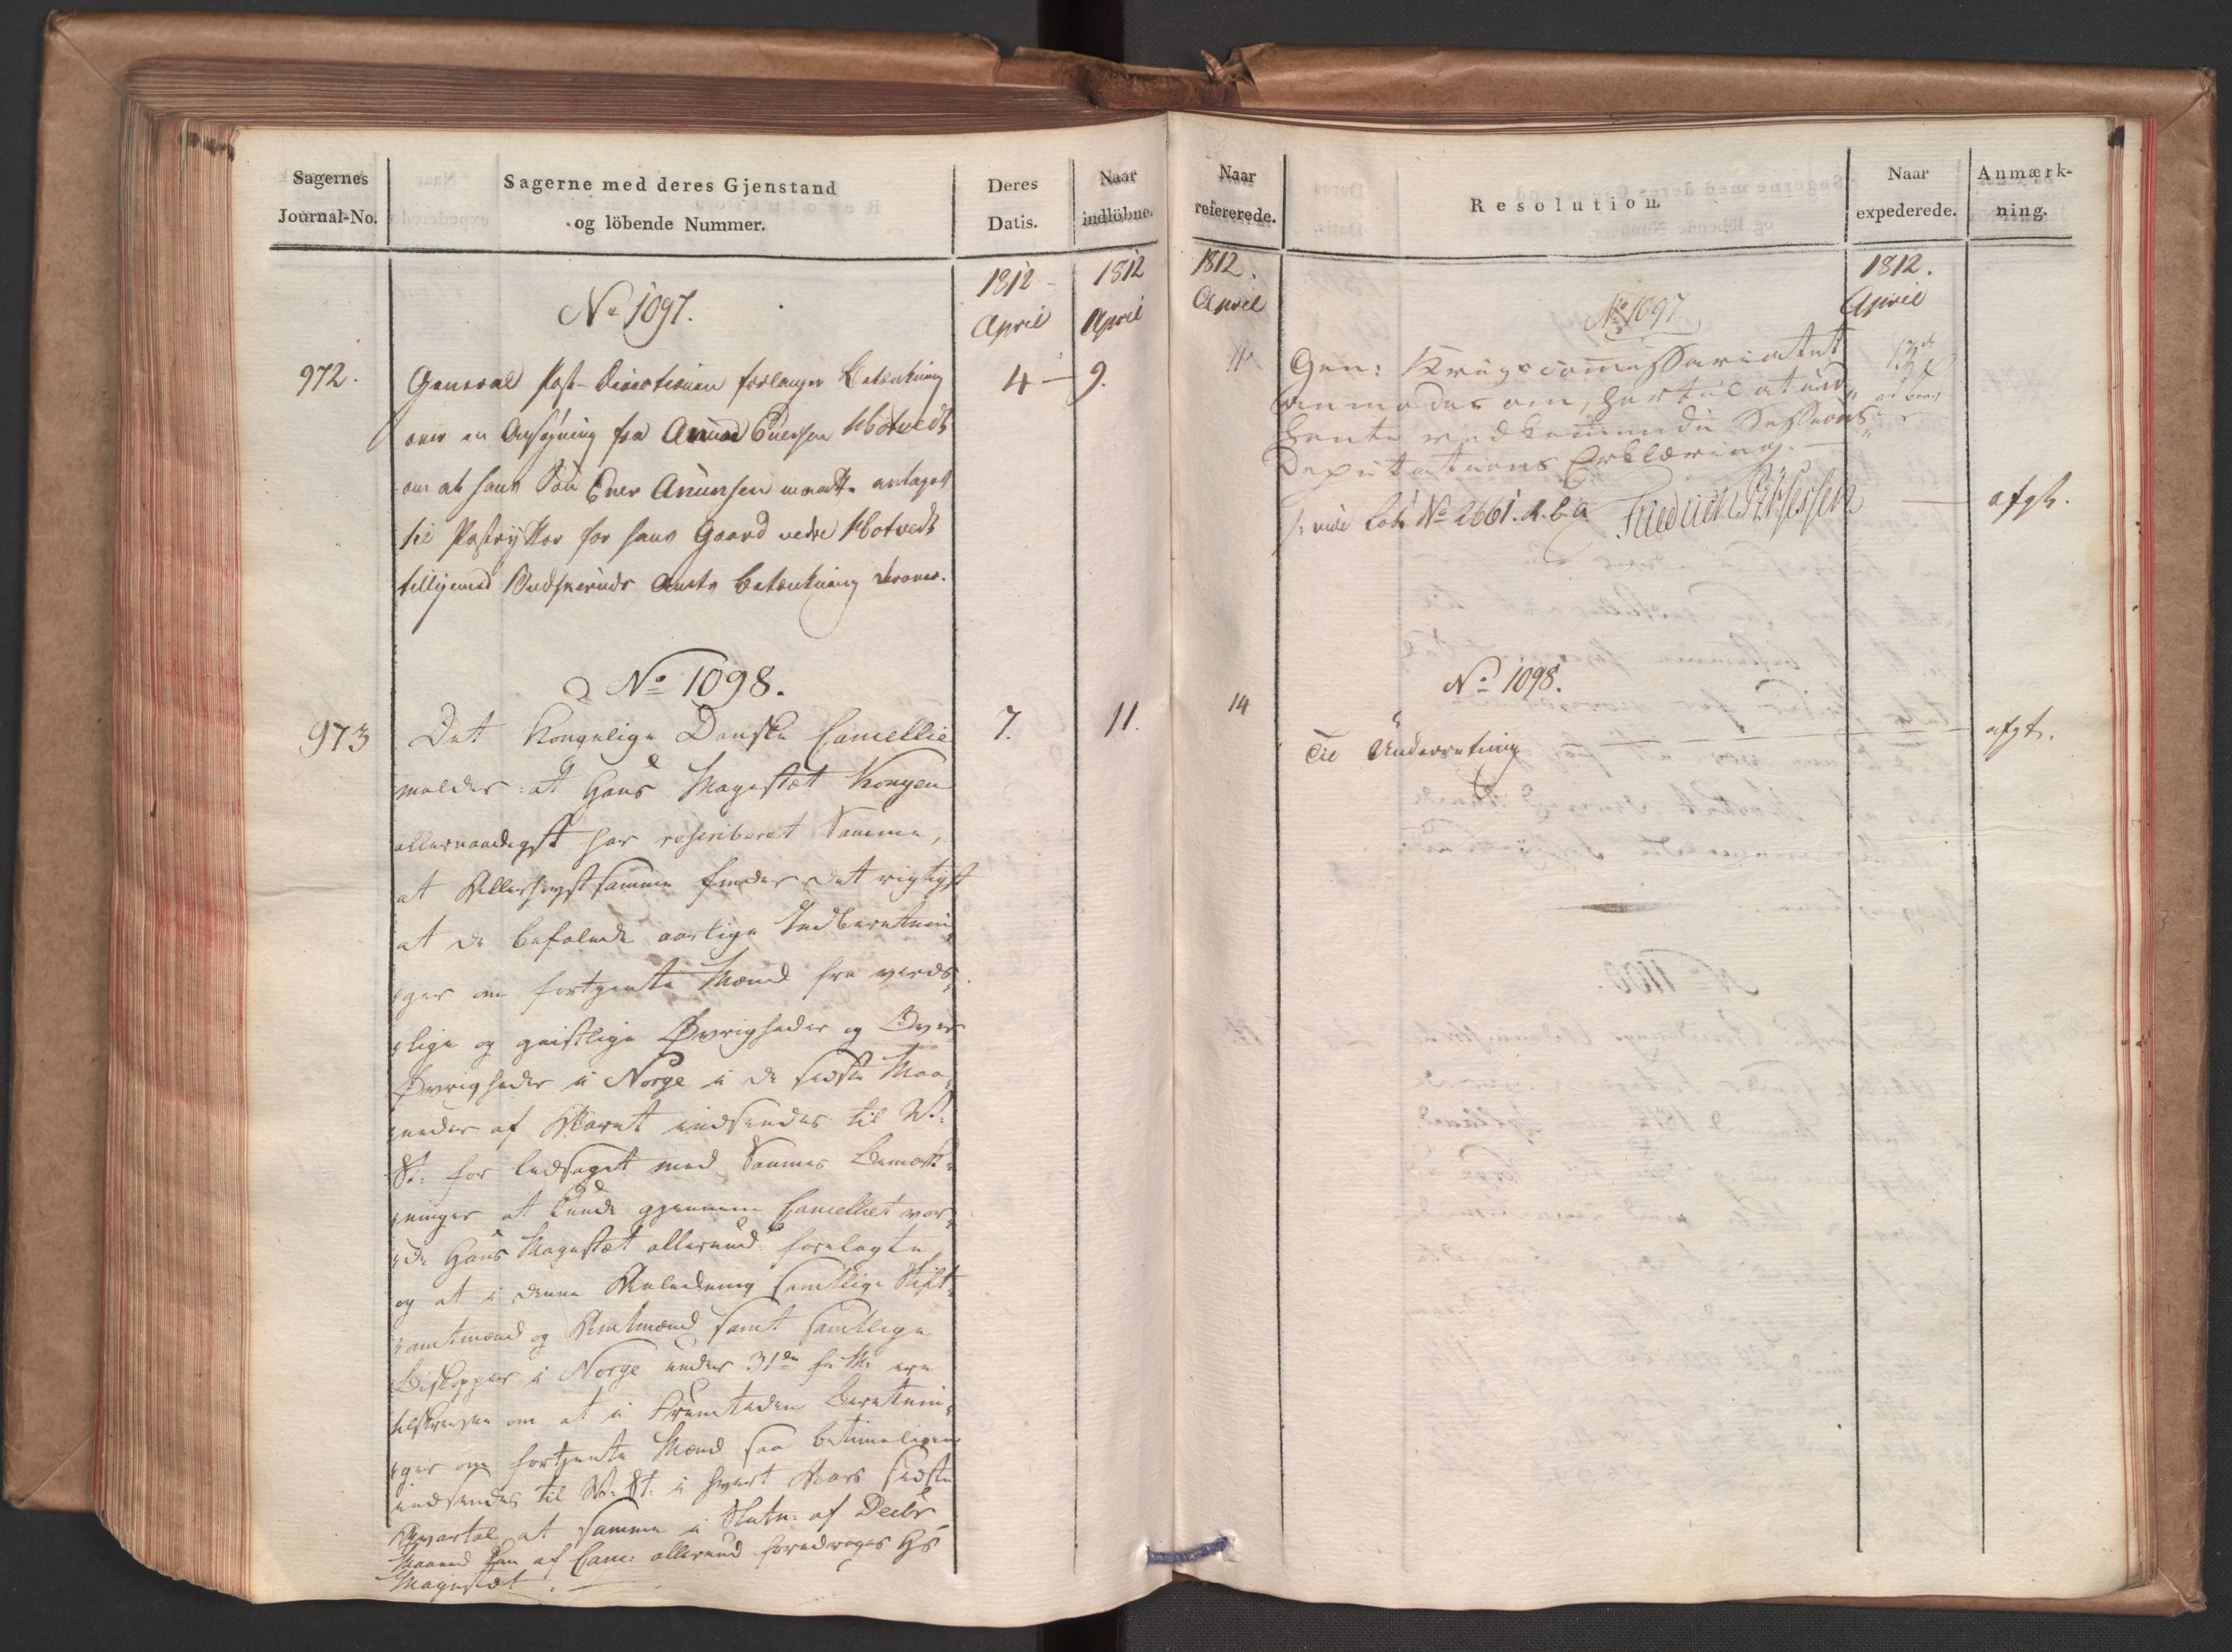 Sagernes
Journal-No.
Sagerne med deres Gjenstand
og löbende Nummer.
Deres
Datis.
Naar
indlöbne.
1812 -
April
1812
April
No 1097.
972.
General Post-Directionen forlanger Betænkning
4 — 9.
over en Ansøgning fra Anund Enersen Hotvedt
om at hans Søn Ener Anunsen maatte antages
til Postrytter for hans Gaard nedre Hotvedt
tilligemed Budskeruds Amts Betænkning derover.
No 1098.
973
Det Kongelige Danske Cancellie
7.
11.
melder: at Hans Majestæt Kongen
allernaadigst har rescriberet Samme,
at Allerhøystsamme finder det rigtigst
at de befalede aarlige Indberetnin-
ger om fortjente Mænd fra verds-
lige og geistlige Øvrigheder og Over
Øvrigheder i Norge i de sidste Maa-
neder af Aaret indsendes til R:
St: for ledsaget med Sammes Bemærk-
ninger at kunde gjennem Cancelliet vor-
de Hans Majestæt allerund: forelagte
og at i denne Anledning samtlige Stift-
amtmænd og Amtmænd samt samtlige
Biskopper i Norge under 31de f: M: ere
tilskrevne om at i Fremtiden Beretnin-
ger om fortjente Mænd saa betimeligen
indsendes til R: St: i hvert Aars sidste
Qvartal, at samme i Slutn: af Decbr
Maaned kan af Canc: allerund foredrages Hs
Majestæt.
Naar
refererede.
Resolution.
Naar
expederede.
Anmærk-
ning.
1812.
April
1812.
April
No 1097.
11
Gen: Krigscommissariatet
anmodes om, hertil at ind-
hente vedkommende Sessions
Deputations Erklæring.
vide Lob: No 2661. d. b. a.
afgt.
No 1098.
14
Til Underretning
afgt.